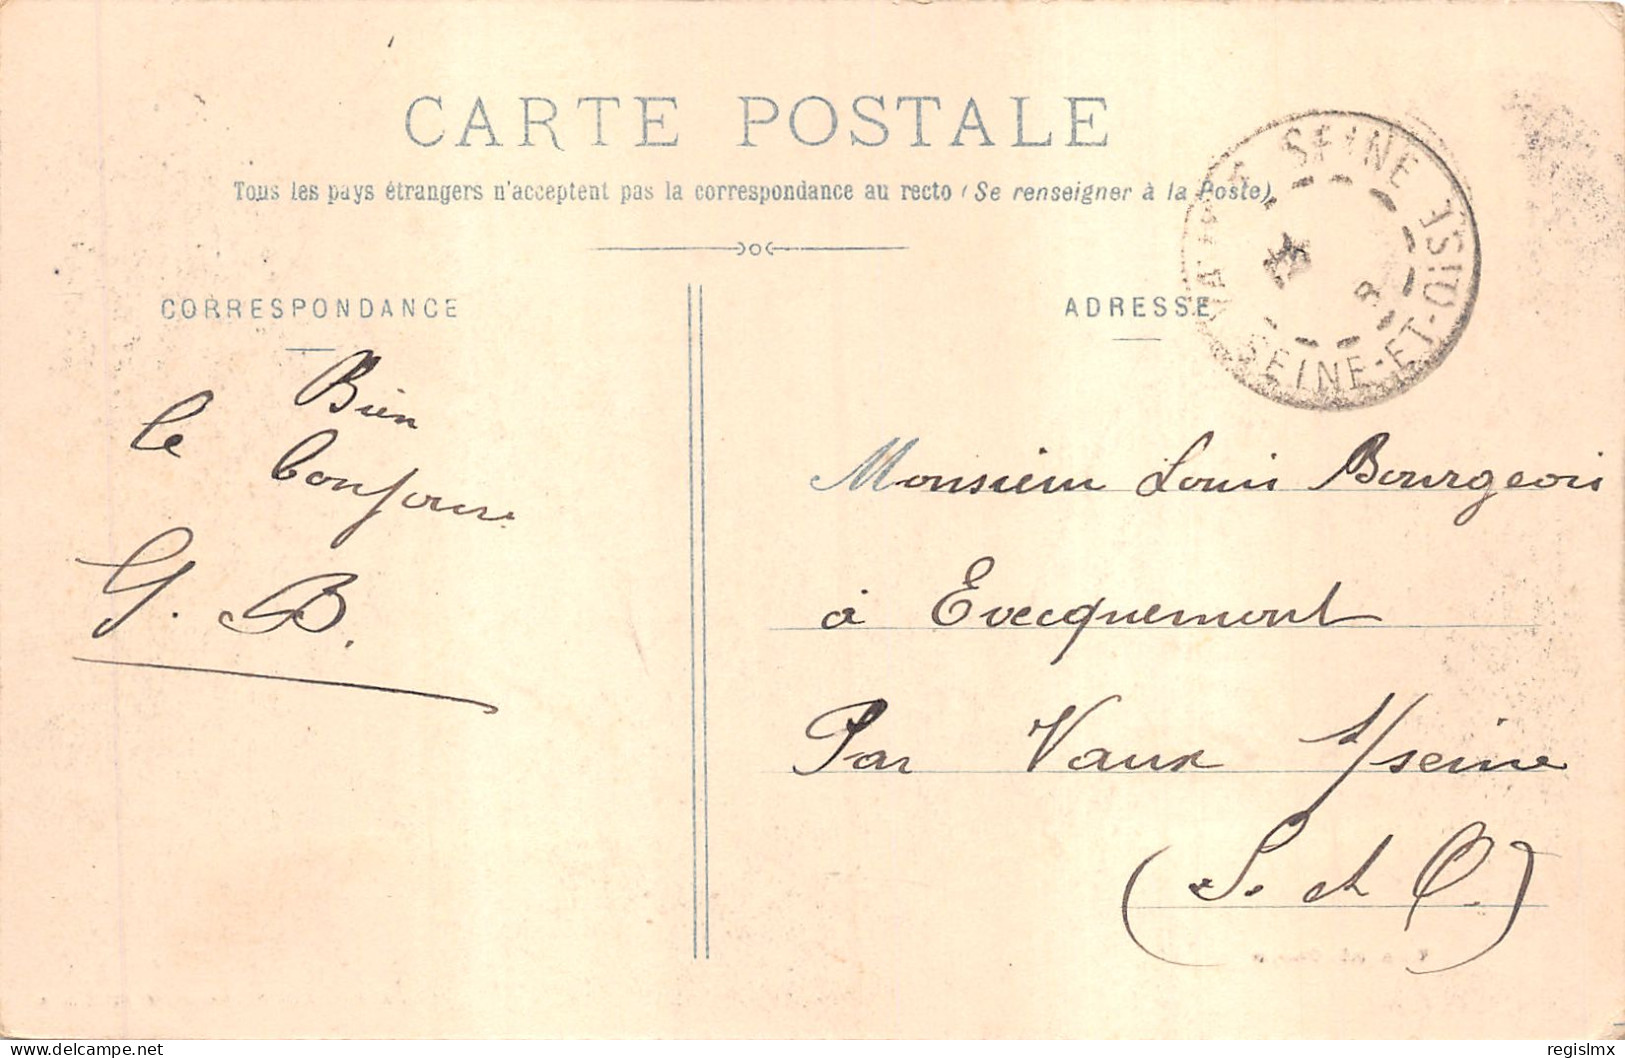 CARTE POSTALE
Tous les pays étrangers n'acceptent pas la correspondance au recto (Se renseigner à la Poste)
CORRESPONDANCE
ADRESSE
SEINE
SEINE-ET-OISE
Bien
le bonjour
G. B.
Monsieur Louis Bourgeois
à Evecquemont
Par Vaux s/seine
(S. et O.)
delcampe.net
regislmx